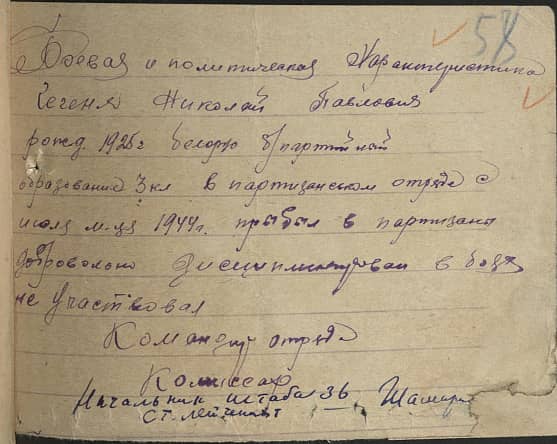 58
Боевая и политическая Характеристика
Николай Павлович
рожд. 1925г белорус б/партийной
образование 3 кл в партизанском отряде с
июля м-ца 1944г. прибыл в партизаны
добровольно Дисциплинирован в боях
не участвовал
Командир отряда
Комиссар
Начальник штаба
ст. лейтенант